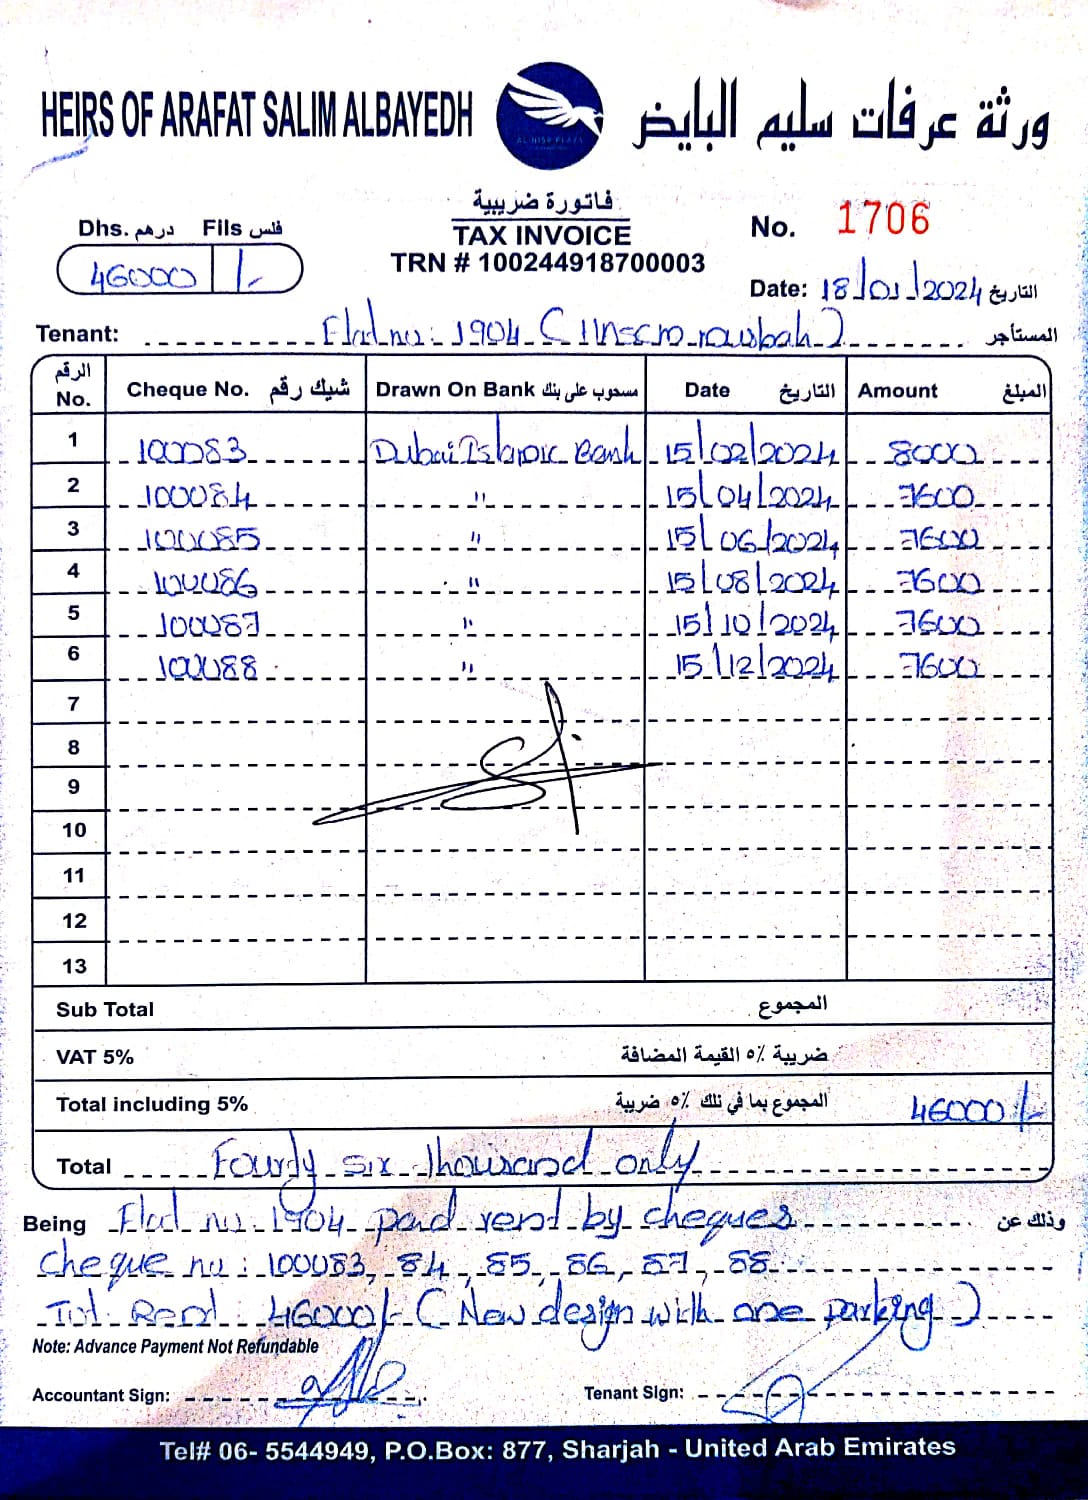 HEIRS OF ARAFAT SALIM ALBAYEDH
ورثة عرفات سليم البايض
AL NISR PLAZA
Dhs. درهم Fils فلس
46000 /-
فاتورة ضريبية
TAX INVOICE
TRN # 100244918700003
No. 1706
Date: 18/01/2024 التاريخ
Tenant: Flat no: 1904 المستأجر
الرقم No. Cheque No. شيك رقم Drawn On Bank مسحوب على بنك Date التاريخ Amount المبلغ
1 100083 Dubai Islamic Bank 15/02/2024 8000
2 100084 " 15/04/2024 7600
3 100085 " 15/06/2024 7600
4 100086 " 15/08/2024 7600
5 100087 " 15/10/2024 7600
6 100088 " 15/12/2024 7600
7
8
9
10
11
12
13
Sub Total المجموع
VAT 5% ضريبة ٥٪ القيمة المضافة
Total including 5% المجموع بما في ذلك ٥٪ ضريبة 46000/-
Total Fourty six thousand only
Being Flat no 1904 paid rent by cheques وذلك عن
Cheque no: 100083, 84, 85, 86, 87, 88
Tot. Rent: 46000/- (New design with one parking)
Note: Advance Payment Not Refundable
Accountant Sign: Tenant Sign:
Tel# 06- 5544949, P.O.Box: 877, Sharjah - United Arab Emirates